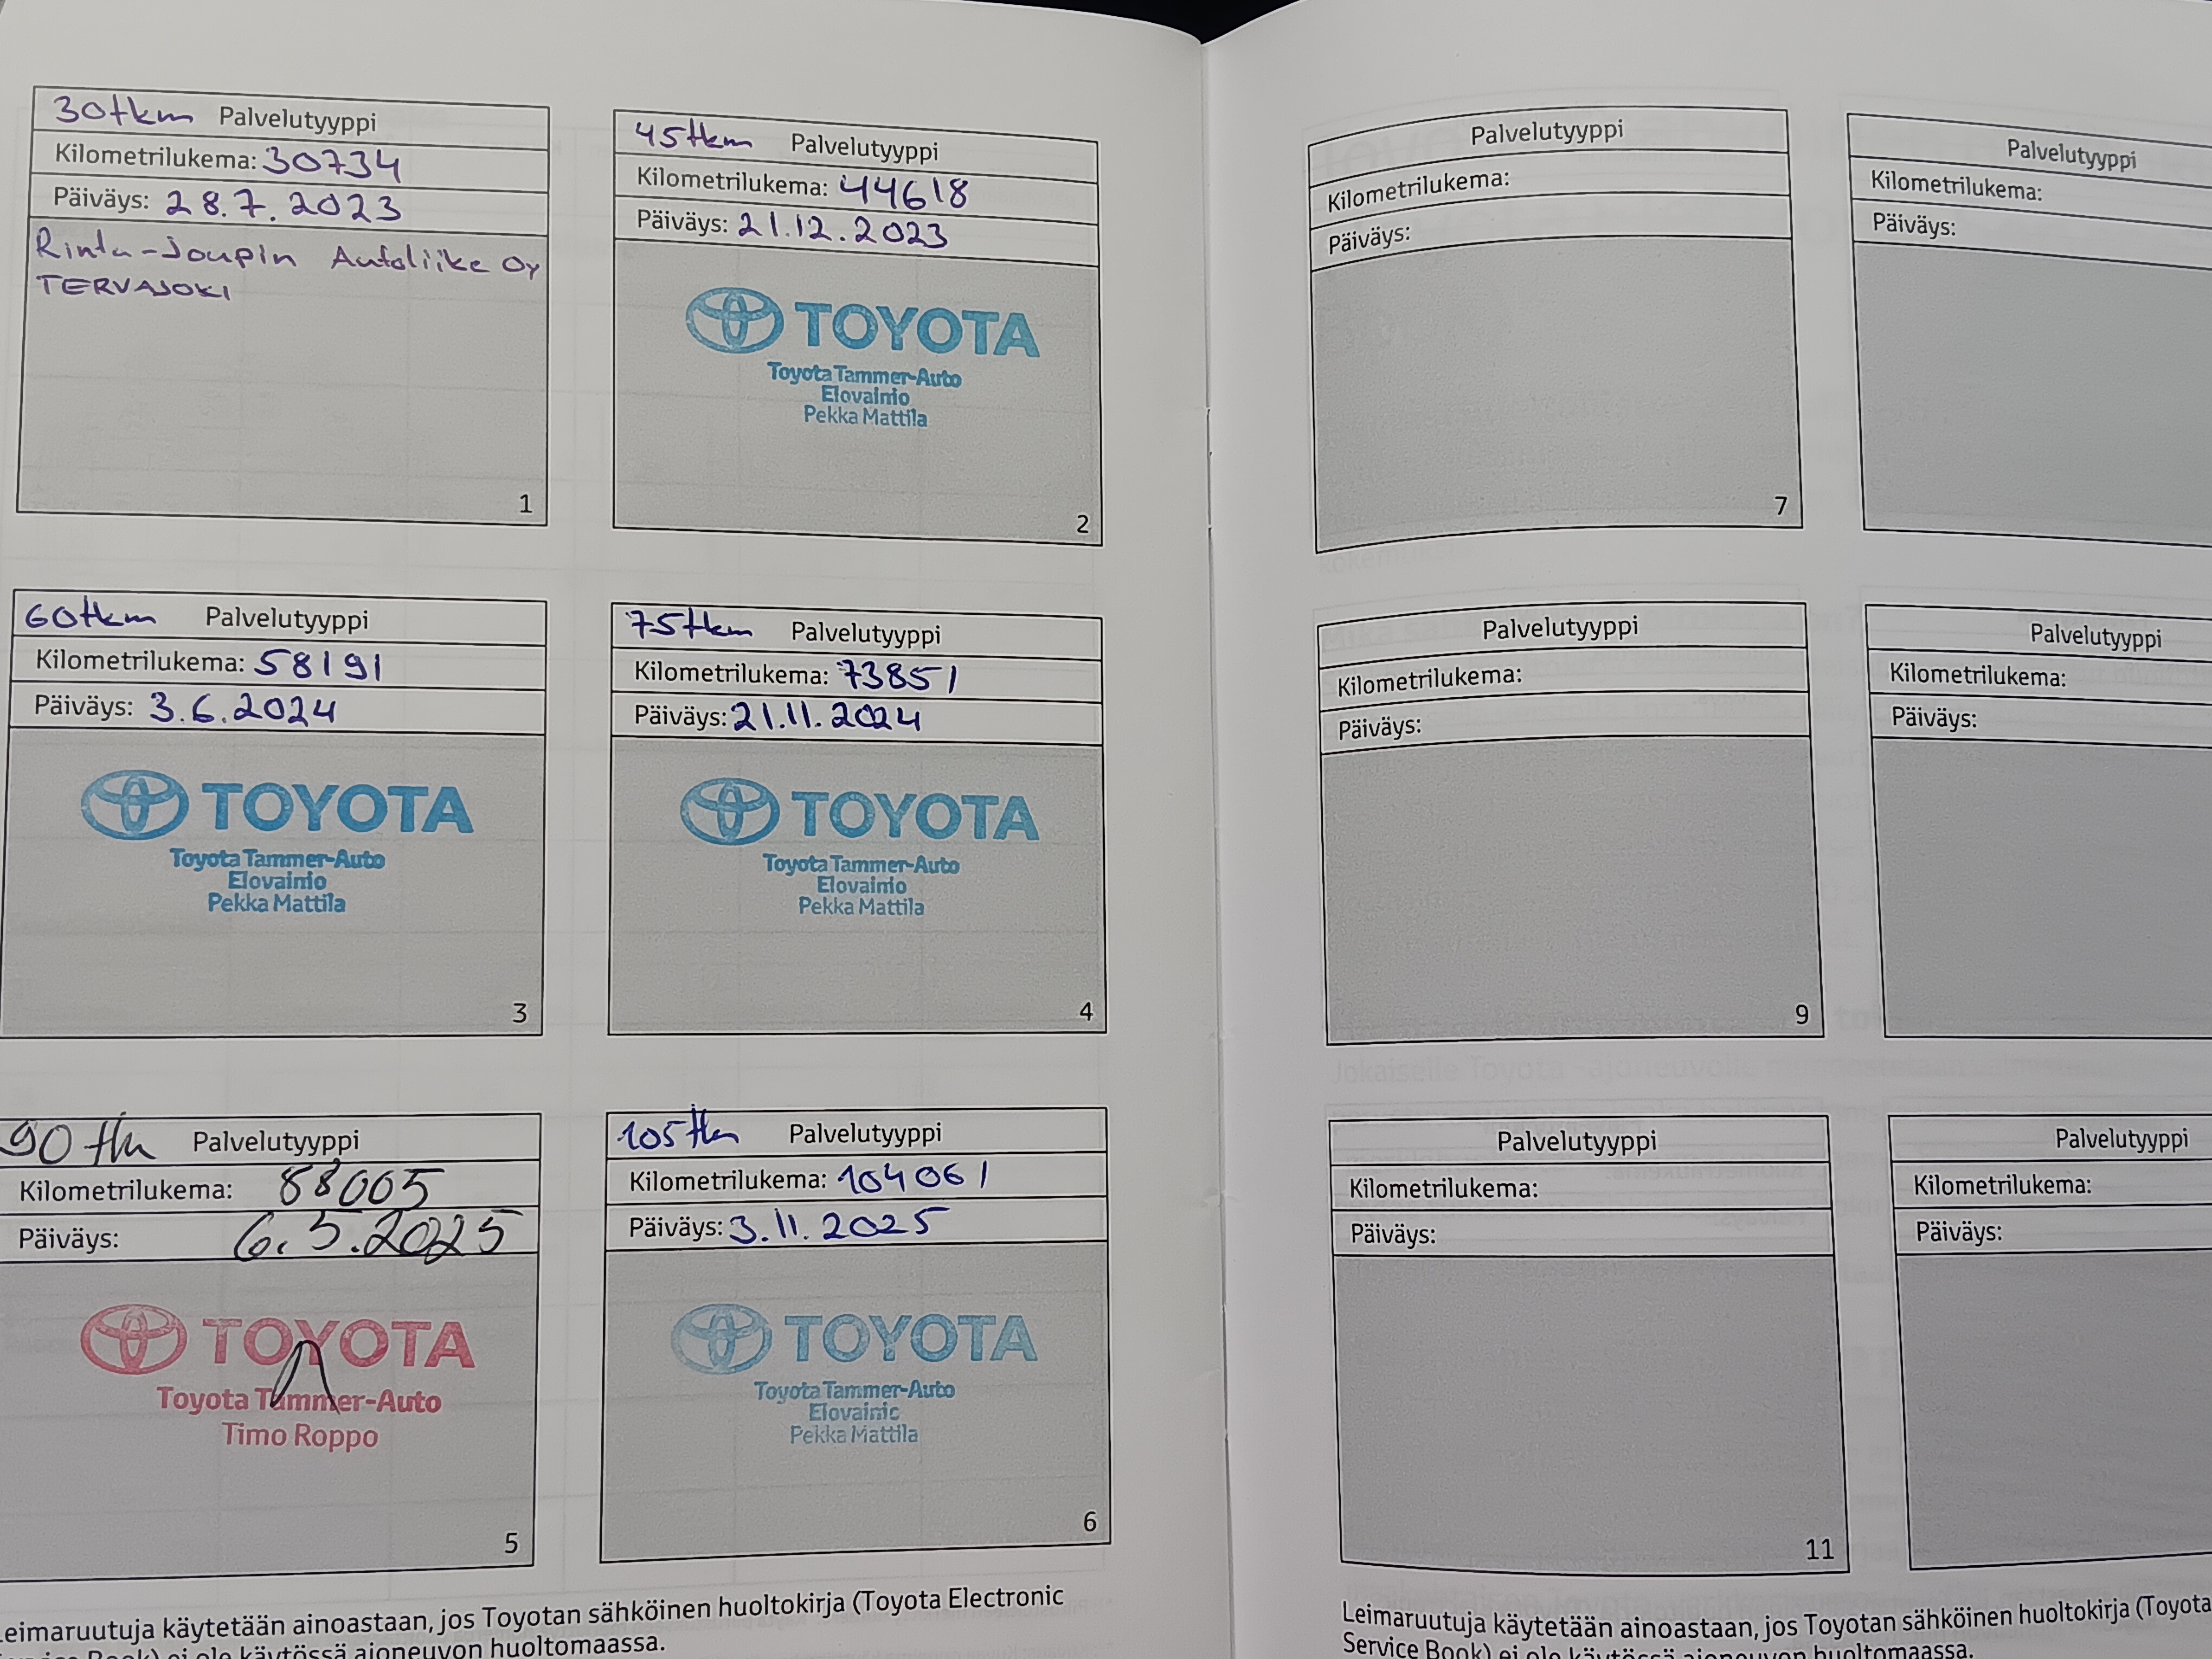 30tkm Palvelutyyppi
Kilometrilukema: 30734
Päiväys: 28.7.2023
Rinta-Joupin Autoliike Oy
TERVAJOKI
1
45tkm Palvelutyyppi
Kilometrilukema: 44618
Päiväys: 21.12.2023
TOYOTA
Toyota Tammer-Auto
Elovainio
Pekka Mattila
2
60tkm Palvelutyyppi
Kilometrilukema: 58191
Päiväys: 3.6.2024
TOYOTA
Toyota Tammer-Auto
Elovainio
Pekka Mattila
3
75tkm Palvelutyyppi
Kilometrilukema: 73851
Päiväys: 21.11.2024
TOYOTA
Toyota Tammer-Auto
Elovainio
Pekka Mattila
4
90 tkm Palvelutyyppi
Kilometrilukema: 88005
Päiväys: 6.5.2025
TOYOTA
Toyota Tammer-Auto
Timo Roppo
5
105tkm Palvelutyyppi
Kilometrilukema: 104061
Päiväys: 3.11.2025
TOYOTA
Toyota Tammer-Auto
Elovainio
Pekka Mattila
6
Leimaruutuja käytetään ainoastaan, jos Toyotan sähköinen huoltokirja (Toyota Electronic
Service Book) ei ole käytössä ajoneuvon huoltomaassa.
Palvelutyyppi
Kilometrilukema:
Päiväys:
7
Palvelutyyppi
Kilometrilukema:
Päiväys:
Palvelutyyppi
Kilometrilukema:
Päiväys:
9
Palvelutyyppi
Kilometrilukema:
Päiväys:
Palvelutyyppi
Kilometrilukema:
Päiväys:
11
Palvelutyyppi
Kilometrilukema:
Päiväys:
Leimaruutuja käytetään ainoastaan, jos Toyotan sähköinen huoltokirja (Toyota
Service Book) ei ole käytössä ajoneuvon huoltomaassa.